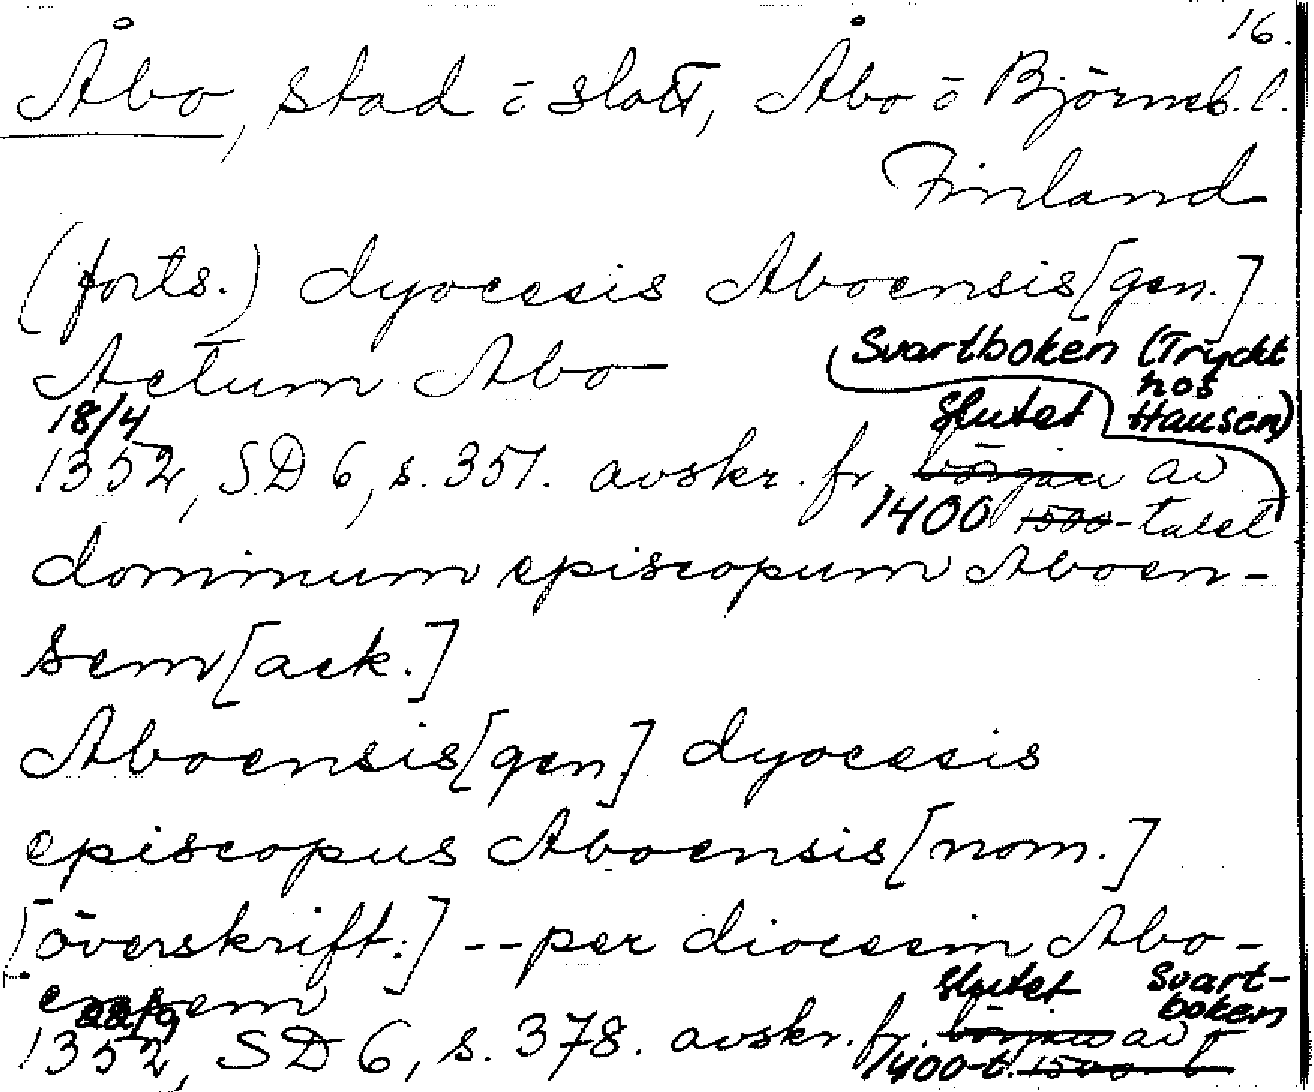 16.
Åbo, stad o slott, Åbo o Björneb. l.
Finland
(forts.) dyocesis Aboensis [gen.]
Actum Abo
Svartboken (Tryckt
nos
18/4 slutet Hausen)
1352, SD 6, s. 351. avskr. fr. början av
1400 1500-talet
dominum episcopum Aboen-
sem [ack.]
Aboensis [gen] dyocesis
episcopus Aboensis [nom.]
[överskrift:] -- per diocesim Abo-
ensem slutet Svart-
22/9 boken
1352, SD 6, s. 378. avskr. fr. början av
1400-t. 1500-t